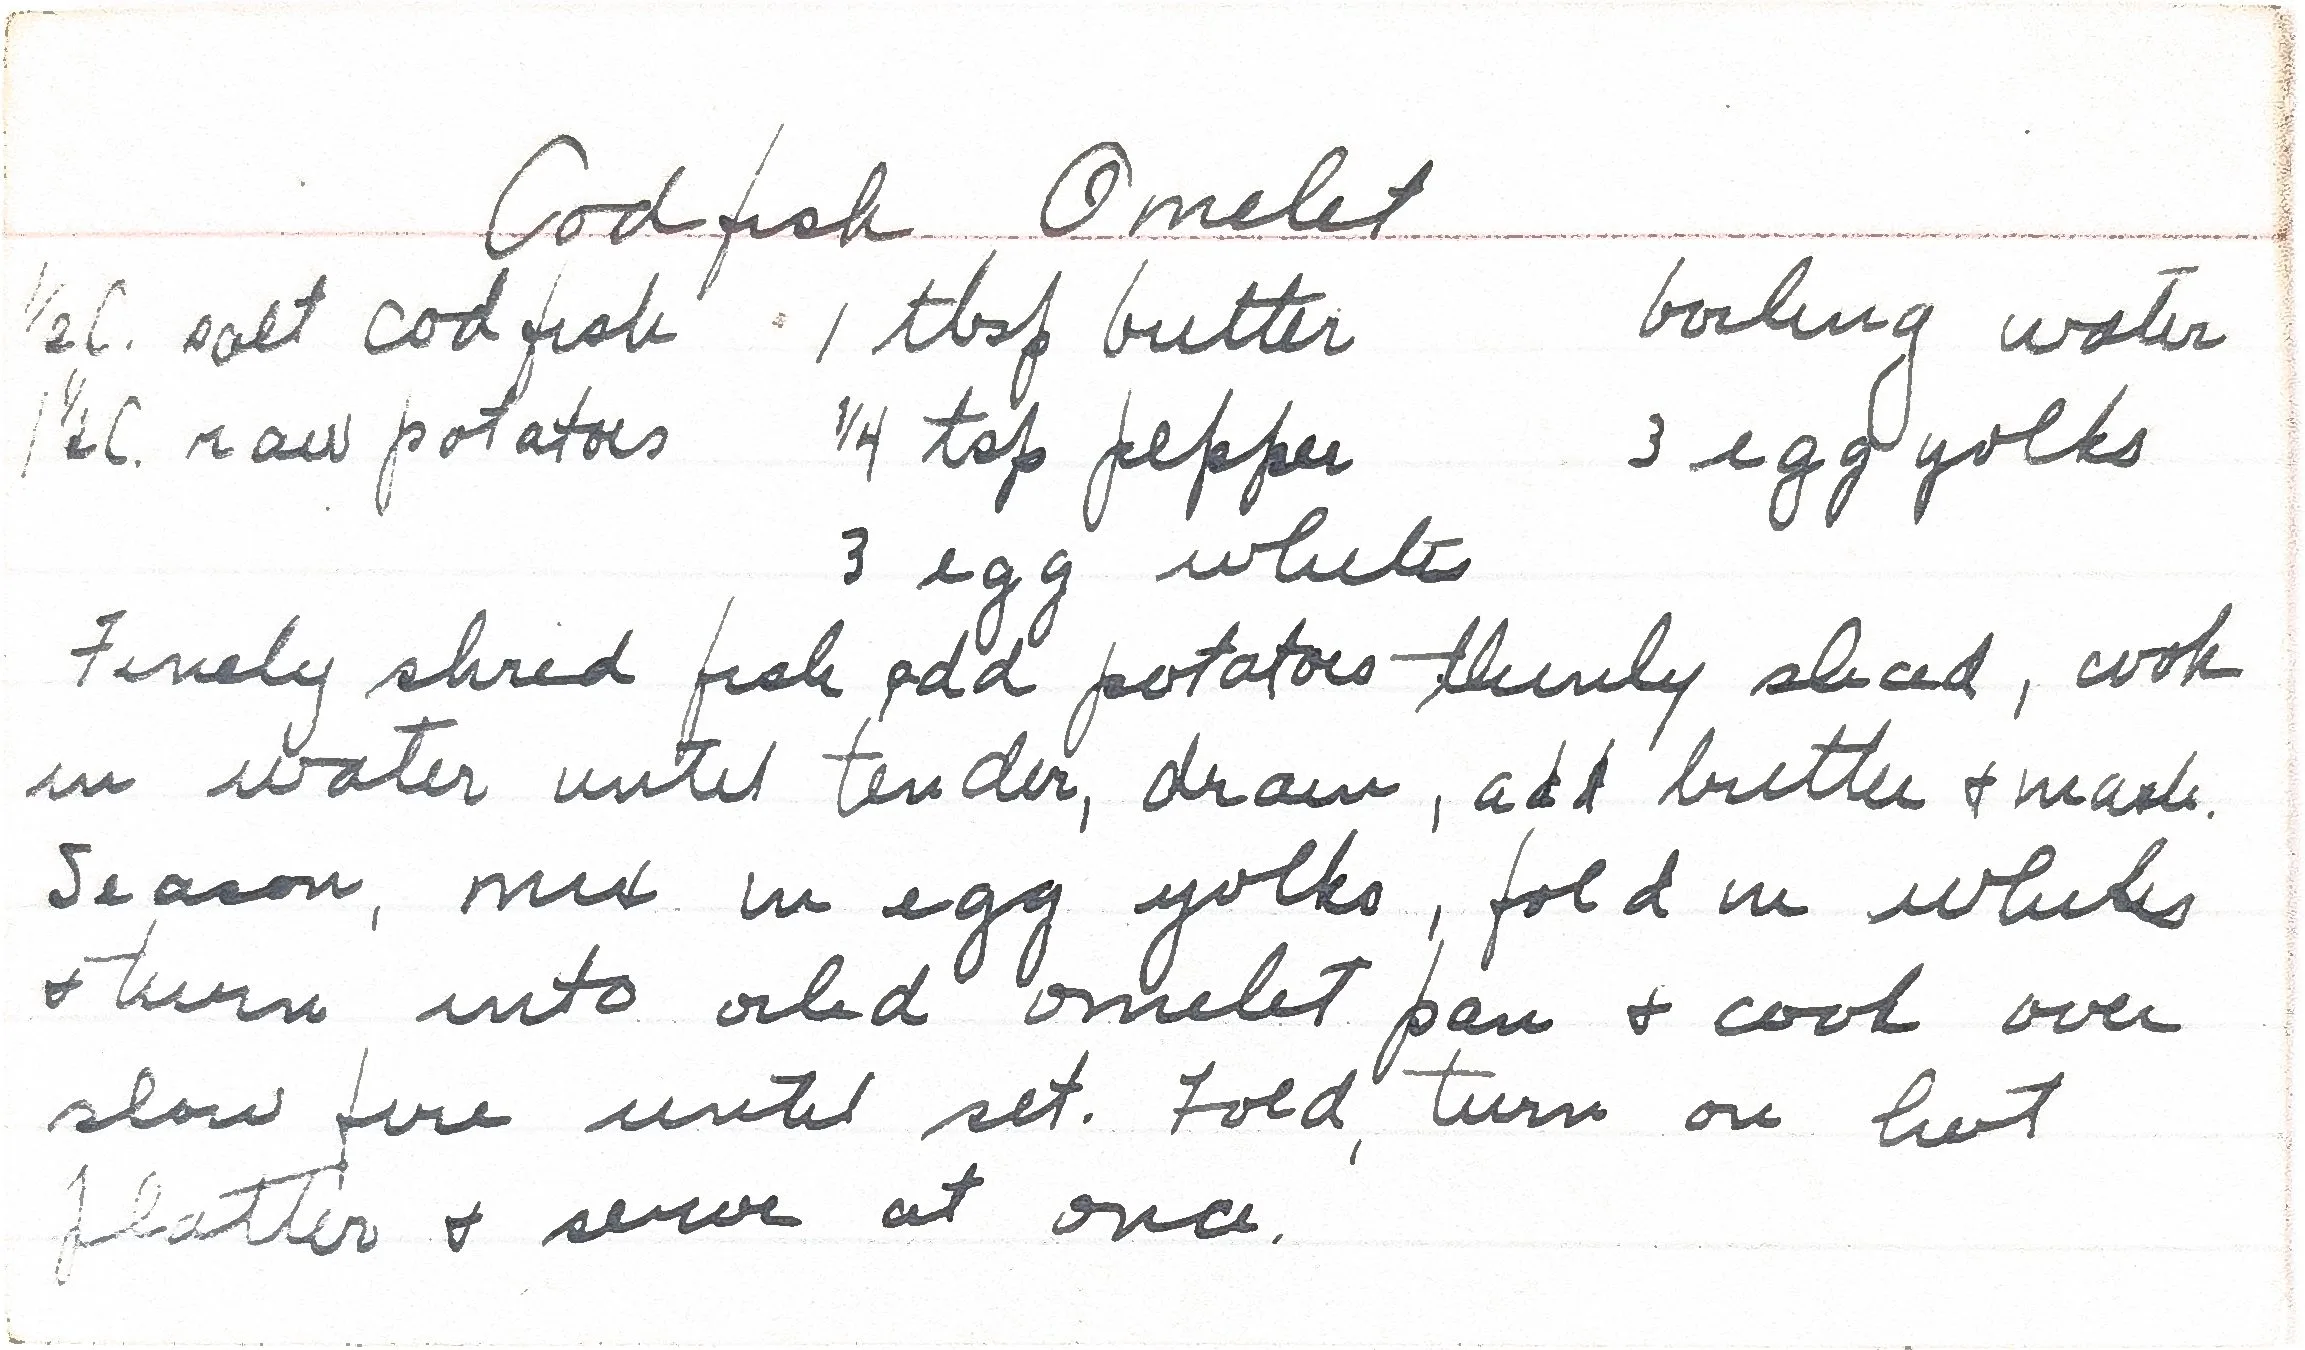 Codfish Omelet
1/2 C. salt codfish 1 tbsp butter boiling water
1 1/2 C. raw potatoes 1/4 tsp pepper 3 egg yolks
3 egg whites
Finely shred fish, add potatoes thinly sliced, cook
in water until tender, drain, add butter & mash.
Season, mix in egg yolks, fold in whites
& turn into oiled omelet pan & cook over
slow fire until set. Fold, turn on hot
platter & serve at once.